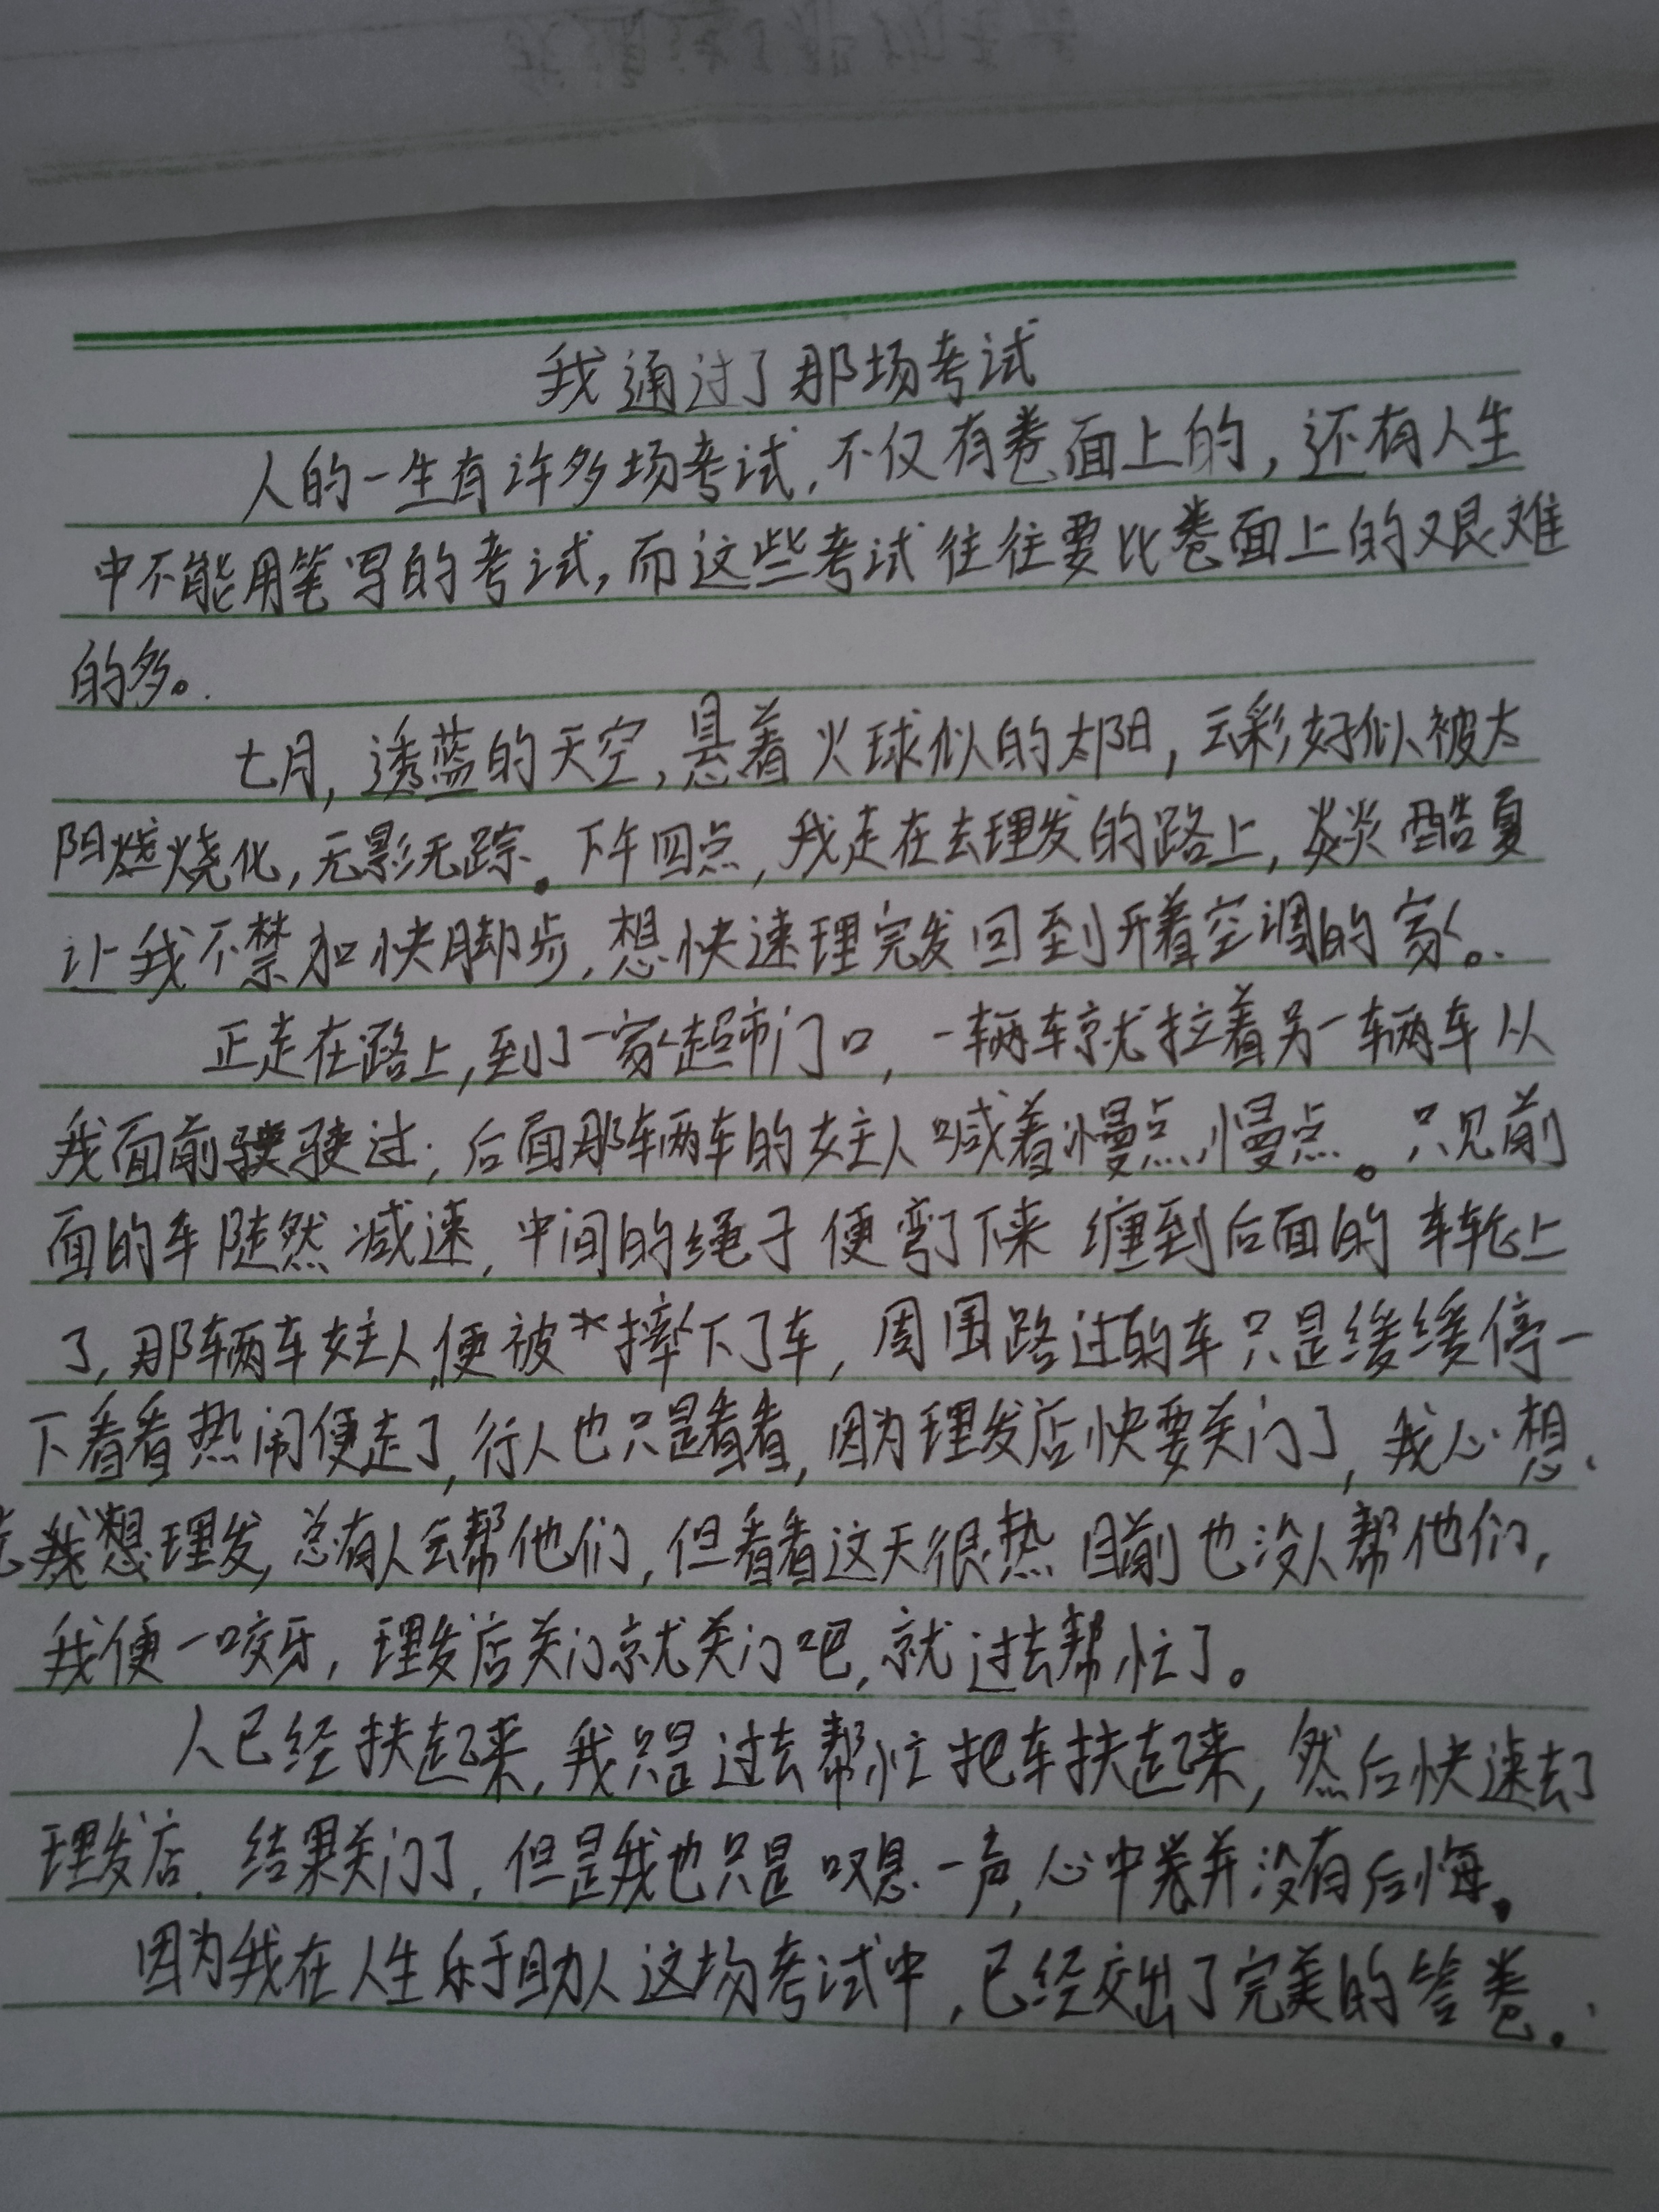 我通过了那场考试
人的一生有许多场考试,不仅有卷面上的,还有人生
中不能用笔写的考试,而这些考试往往要比卷面上的艰难
的多。
七月,透蓝的天空,悬着火球似的太阳,云彩好似被太
阳烧化,无影无踪。下午四点,我走在去理发的路上,炎炎酷夏
让我不禁加快脚步,想快速理完发回到开着空调的家。
正走在路上,到了一家超市门口,一辆车就拉着另一辆车从
我面前驶过;后面那辆车的女主人喊着慢点,慢点。只见前
面的车陡然减速,中间的绳子便弯了下来缠到后面的车轮上
了,那辆车女主人便被摔下了车,周围路过的车只是缓缓停一
下看看热闹便走了,行人也只是看看,因为理发店快要关门了,我心想、
想理发,总有人会帮他们,但看看这天很热目前也没人帮他们,
我便一咬牙,理发店关门就关门吧,就过去帮忙了。
人已经扶起来,我只是过去帮忙把车扶起来,然后快速去了
理发店,结果关门了,但是我也只是叹息一声,心中并没有后悔。
因为我在人生乐于助人这场考试中,已经交出了完美的答卷。